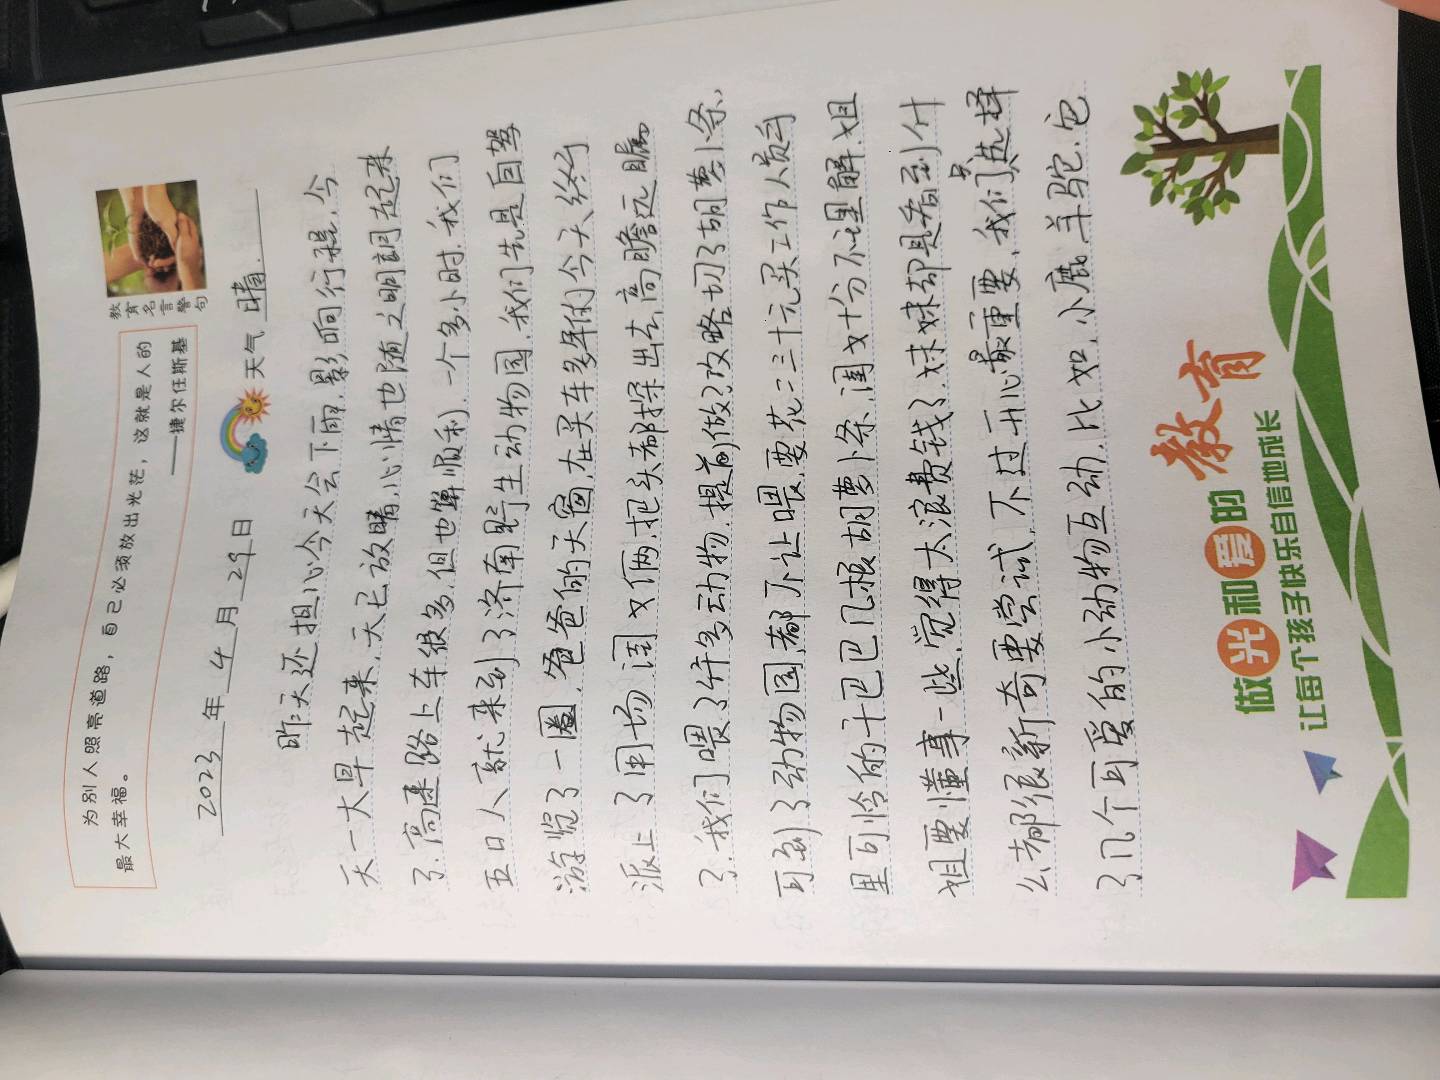 为别人照亮道路，自己必须放出光芒，这就是人的
最大幸福。
——捷尔任斯基
教育名言警句
2023年4月29日 天气 晴.
昨天还担心今天会下雨.影响行程.今
天一大早起来,天已放晴.心情也随之明朗起来
了.高速路上车很多.但也算顺利.一个多小时.我们
五日人就来到了济南野生动物园.我们先是自驾
游览了一圈.爸爸的天窗.在买车多年的今天终于
派上了用场.闺女俩.把头都探出去.高瞻远瞩
了.我们喂了许多动物.提前做了攻略切了胡萝卜条,
可到了动物园.都不让喂.要花二三十元买工作人员手
里可怜的干巴巴几根胡萝卜条.闺女十分不理解.姐
姐要懂事一些.觉得太浪费钱了.妹妹却是看到什
么都很新奇要尝试.不过开心最重要.我们只选择
了几个可爱的小动物互动.比如.小鹿.羊驼.它
做光和爱的教育
让每个孩子快乐自信地成长